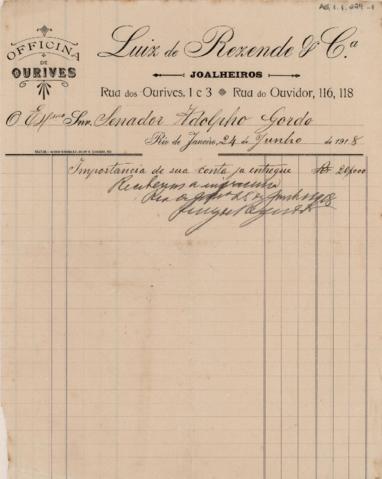 AG.1.1.
OFFICINA
DE
OURIVES
Luiz de Rezende & Cª
JOALHEIROS
Rua dos Ourives, 1 e 3 Rua do Ouvidor, 116, 118
O Exmo Snr. Senador Adolpho Gordo
Rio de Janeiro, 24 de Junho de 1918
Importância de sua conta já entregue Rs 20$000
Recebemos a
Rio de de Junho 1918